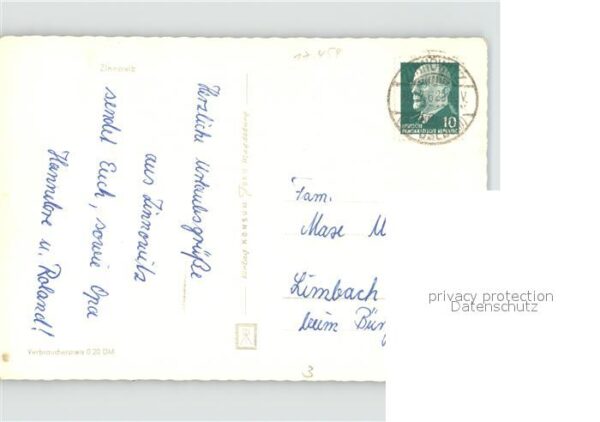 Zinnowitz
Herzliche Urlaubsgrüße
aus Zinnowitz
sendet Euch, sowie Opa
Hannelore u. Roland!
Verbraucherpreis 0.20 DM
10
DEUTSCHE
DEMOKRATISCHE REPUBLIK
Fam.
Maxe M
Limbach
beim Bür
3
privacy protection
Datenschutz